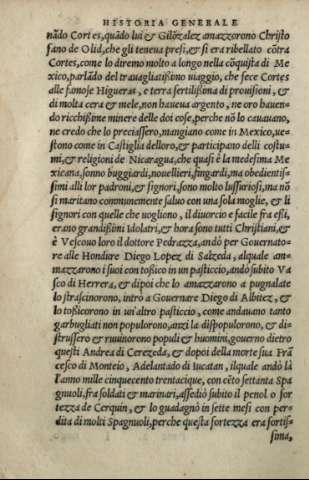 HISTORIA GENERALE
nãdo Cortes, quãdo lui & Gilõzalez amazzorono Christo
fano de Olid, che gli teneua presi, & si era ribellato cõtra
Cortes, come lo diremo molto a longo nella cõquista di Me
xico, parlãdo del trauagliatissimo uiaggio, che fece Cortes
alle famose Higueras, e terra fertilissima di prouisioni, &
di molta cera & mele, non haueua argento, ne oro hauen-
do ricchissime minere delle doi cose, perche nõ lo cauauano,
ne credo che lo preciassero, mangiano come in Mexico, ue-
stono come in Castiglia delloro, & participano delli costu-
mi, & religioni de Nicaragua, che quasi è la medesima Me
xicana, sonno buggiardi, nouellieri, fingardi, ma obedientis-
simi alli lor padroni, & signori, sono molto lussuriosi, ma nõ
si maritano communemente saluo con una sola moglie, & li
signori con quelle che uogliono, il diuorcio e facile fra essi,
erano grandissimi Idolatri, & hora sono tutti Christiani, &
è Vescouo loro il dottore Pedrazza, andò per Gouernato-
re alle Hondure Diego Lopez di Salzeda, alquale am-
mazzarono i suoi con tossico in un pasticcio, andò subito Va
sco di Herrera, & dipoi che lo amazzarono a pugnalate
lo strascinorono, intrò a Gouernare Diego di Albitez, &
lo tossicorono in un'altro pasticcio, come andauano tanto
garbugliati non populorono, anzi la dispopulorono, & di-
strussero & ruuinorono populi & huomini, gouerno dietro
questi Andrea di Cerezeda, & dopoi della morte sua Frã
cesco di Monteio, Adelantado di Iucatan, ilquale andò là
l'anno mille cinquecento trentacique, con cẽto settanta Spa
gnuoli, fra soldati & marinari, assediò subito il penol o for
tezza de Cerquin, & lo guadagnò in sette mesi con per-
dita di molti Spagnuoli, perche questa fortezza era fortis-
sima,